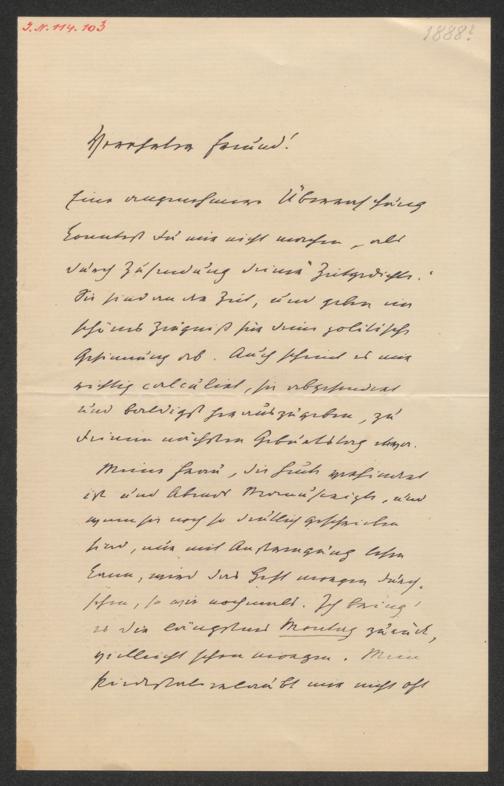 I.N. 114.103
1888?
Verehrter Freund!
Eine angenehmere Überraschung
konntest du mir nicht machen, als
durch Zusendung deiner "Zeitgedichte."
Sie sind an der Zeit, und geben ein
schönes Zeugniß für deine politische
Gesinnung ab. Auch scheint es mir
richtig calculirt, sie abgesondert
und baldigst herauszugeben, zu
deinem nächsten Geburtstag etwa.
Meine Frau, die heute verhindert
ist und Abends Manuscripte, und
wenn sie noch so deutlich geschrieben
sind, nur mit Anstrengung lesen
kann, wird das Heft morgen durch-
sehen, so wie nochmals. Ich bringe
es dir längstens Montag zurück,
vielleicht schon morgen. Mein
erlaubt mir nicht oft